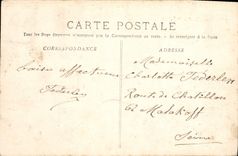 CARTE POSTALE
Tous les Pays étrangers n'acceptent pas la Correspondance au recto. - Se renseigner à la Poste
CORRESPONDANCE
ADRESSE
Mademoiselle
Baiser affectueux
Charlotte
Route de Chatillon
62 Malakoff
Seine